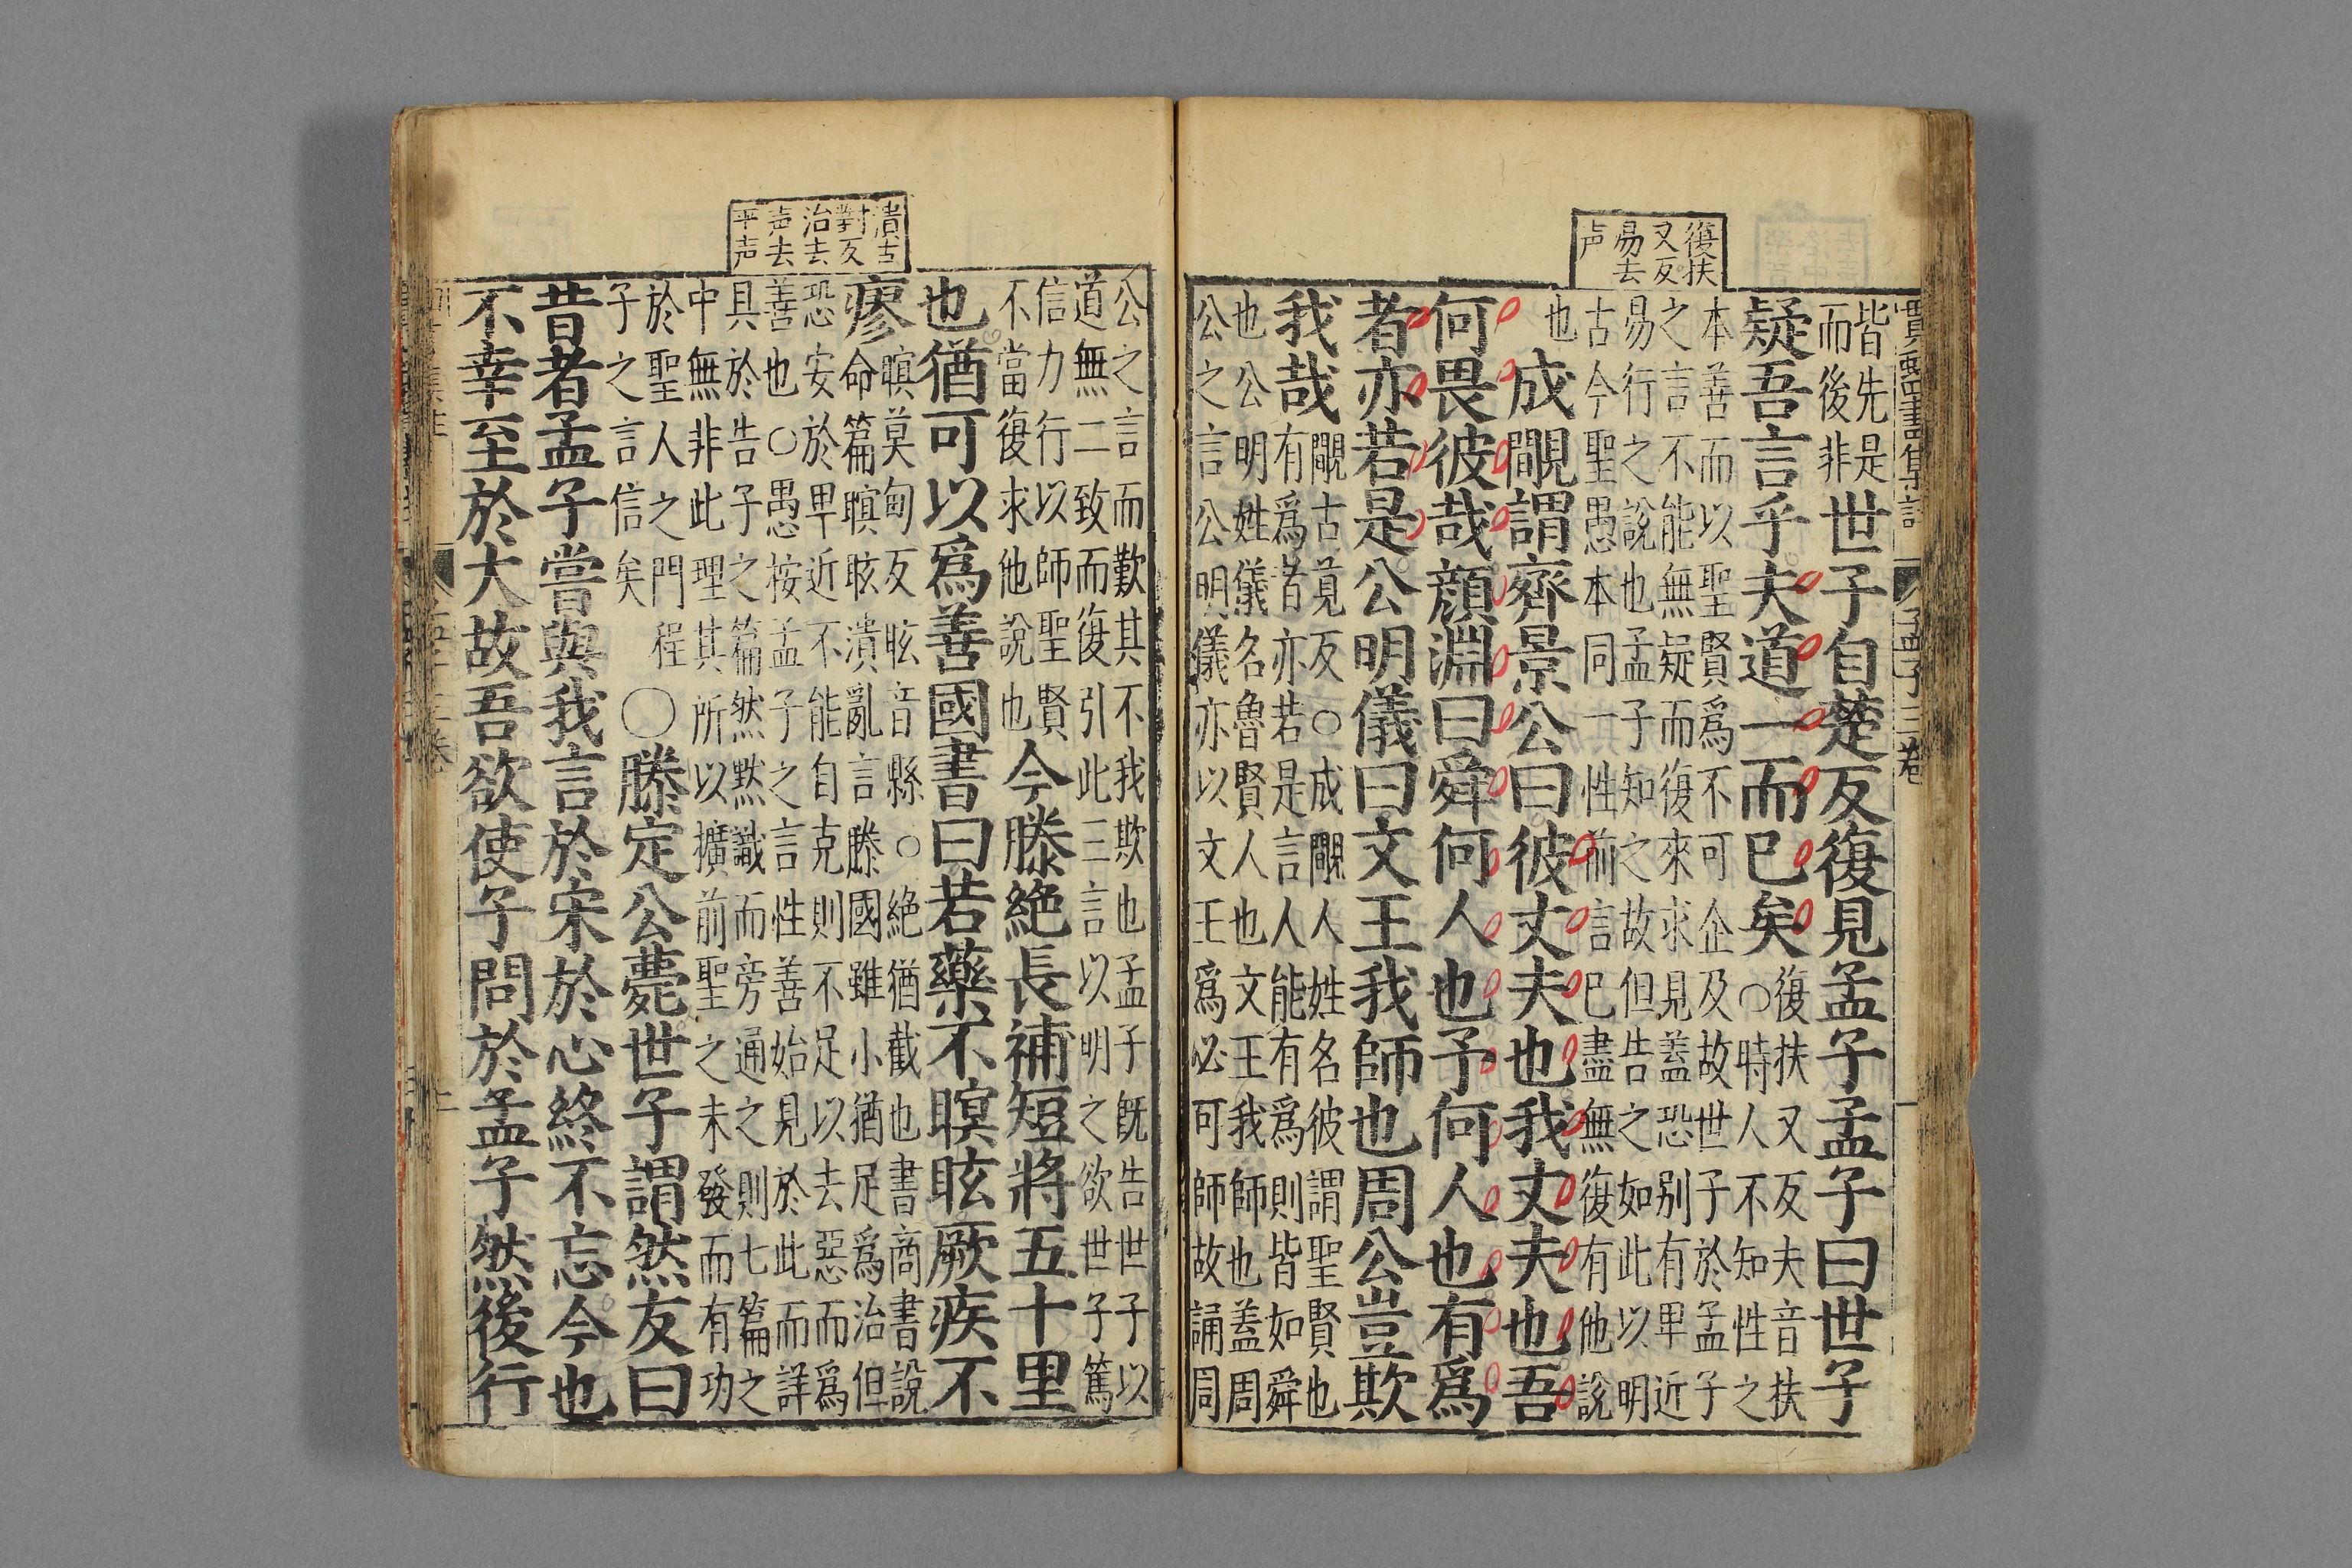 復扶
又反
易去
声
孟子三卷
皆先是
而後非
世子自楚反復見孟子孟子曰世子
疑吾言乎夫道一而已矣
復扶又反夫音扶
○時人不知性之
本善而以聖賢爲不可企及故世子於孟子
之言不能無疑而復來求見蓋恐別有卑近
易行之說也孟子知之故但告之如此以明
古今聖愚本同一性前言已盡無復有他說
也
成覸謂齊景公曰彼丈夫也我丈夫也吾
何畏彼哉顔淵曰舜何人也予何人也有爲
者亦若是公明儀曰文王我師也周公豈欺
我哉
覸古莧反○成覸人姓名彼謂聖賢也
有爲者亦若是言人能有爲則皆如舜
也公明姓儀名魯賢人也文王我師也蓋周
公之言公明儀亦以文王爲必可師故誦周
潰古
對反
治去
声去
平声
公之言而歎其不我欺也孟子既告世子以
道無二致而復引此三言以明之欲世子篤
信力行以師聖賢
不當復求他說也
今滕絶長補短將五十里
也猶可以爲善國書曰若藥不瞑眩厥疾不
瘳
瞑莫甸反眩音縣○絶猶截也書商書說
命篇瞑眩潰亂言滕國雖小猶足爲治但
恐安於卑近不能自克則不足以去惡而爲
善也○愚按孟子之言性善始見於此而詳
具於告子之篇然默識而旁通之則七篇之
中無非此理其所以擴前聖之未發而有功
於聖人之門程
子之言信矣
○滕定公薨世子謂然友曰
昔者孟子嘗與我言於宋於心終不忘今也
不幸至於大故吾欲使子問於孟子然後行